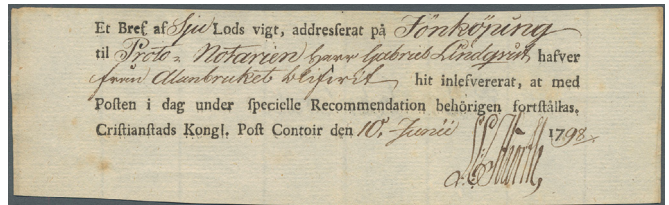 Et Bref af Sju Lods vigt, addresserat på Jönköping
til Proto-Notarien Herr Gabriel Lindqvist hafver
från Alunbruket blifvit hit inlefvererat, at med
Posten i dag under specielle Recommendation behörigen fortskaffas.
Cristianstads Kongl. Post Contoir den 10. Junii 1798